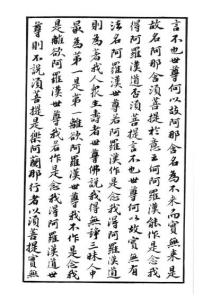 言不也世尊何以故阿那含名為不來而實無來是
故名阿那含須菩提於意云何阿羅漢能作是念我
得阿羅漢道否須菩提言不也世尊何以故實無有
法名阿羅漢世尊若阿羅漢作是念我得阿羅漢道
則為著我人眾生壽者世尊佛說我得無諍三昧人中
最為第一是第一離欲阿羅漢世尊我不作是念我
是離欲阿羅漢世尊我若作是念我得阿羅漢道世
尊則不說須菩提是樂阿蘭那行者以須菩提實無